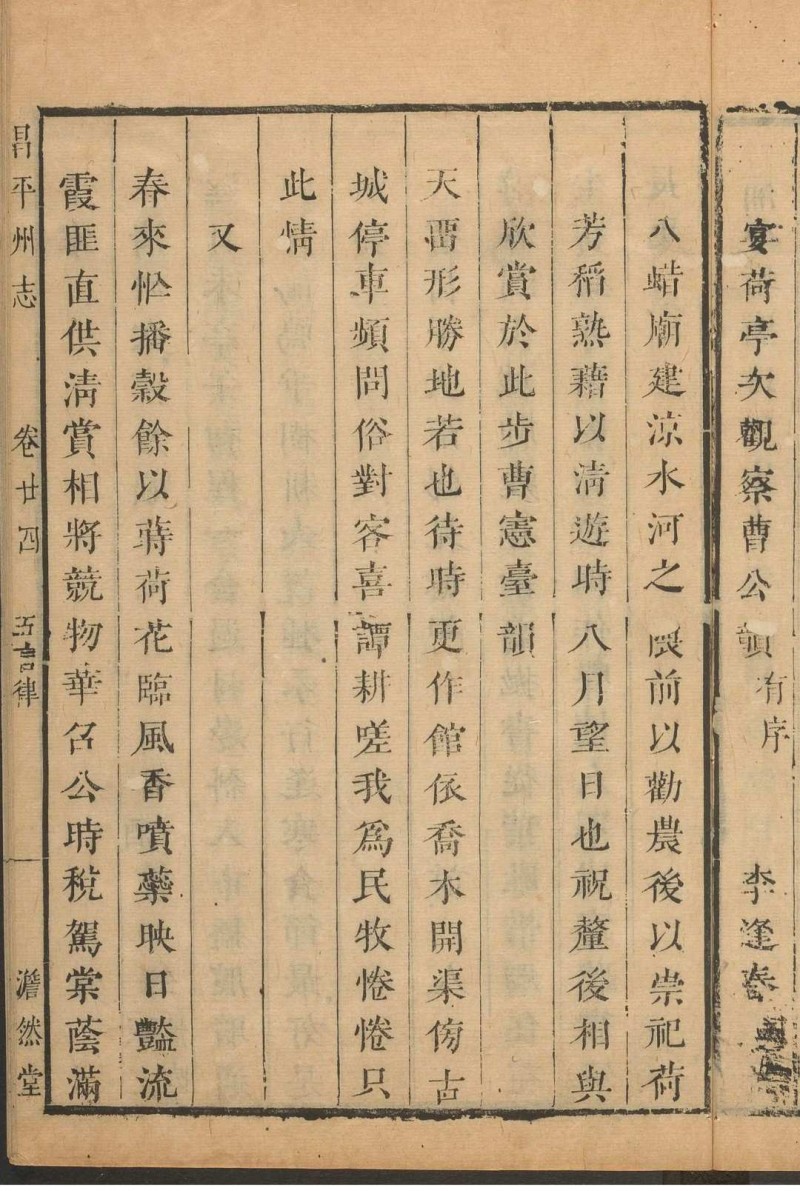 宴荷亭次觀察曹公韻有序 李逢春
八蜡廟建涼水河之
前以勸農後以祟祀荷
芳稻熟藉以清遊時八月望日也祝釐後相與
欣賞於此步曹憲臺韻
天畱形勝地若也待時更作館依喬木開渠傍古
城停車頻問俗對客喜譚耕嗟我為民牧惓惓只
此情
又
春來忙播穀餘以蒔荷花臨風香噴藥映日豔流
霞匪直供清賞相將競物華召公時稅駕棠蔭滿
昌平州志 卷廿四 五言律 澹然堂